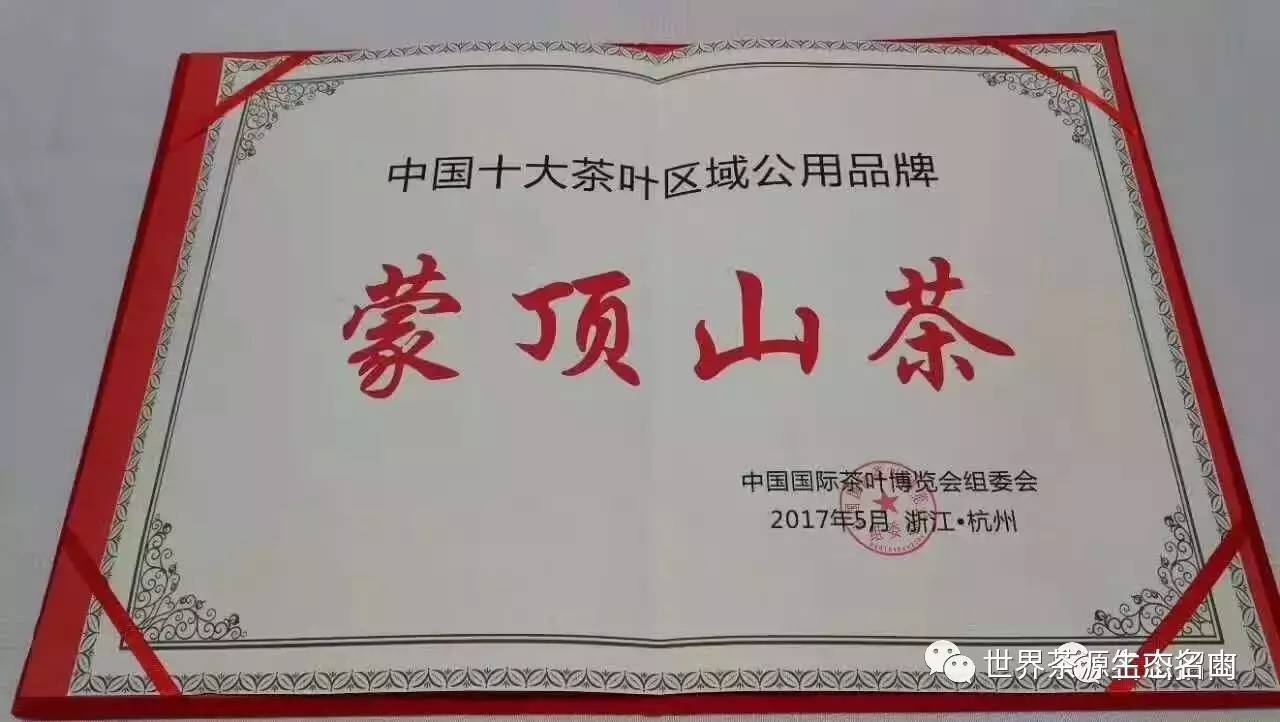 中国十大茶叶区域公用品牌
蒙顶山茶
中国国际茶叶博览会组委会
2017年5月 浙江·杭州
世界茶源生态名山